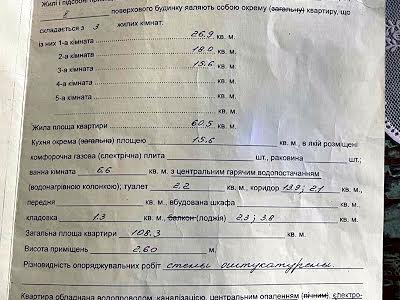 Жилі і підсобні
поверхового будинку являють собою окрему (загальну) квартиру, що
складається з 3 жилих кімнат:
із них 1-а кімната 26,9 кв. м,
2-а кімната 18.0 кв. м,
3-а кімната 15.6 кв. м,
4-а кімната кв. м,
5-а кімната кв. м,
кв. м,
Жила площа квартири 60.5 кв. м,
Кухня окрема (загальна) площею 15.6 кв. м, в якій розміщені
комфорочна газова (єлектрична) плита шт., раковина шт.,
ванна кімната 6.6 кв. м, з центральним гарячим водопостачанням
водонагрівною колонкою); туалет 2.2 кв. м, коридор 13.9; 2.1 кв. м,
передня кв. м, вбудована шкафа кв. м,
кладовка 1.3 кв. м, балкон (лоджія) 2.3; 3.8 кв. м,
Загальна площа квартири 108.3 кв. м,
Висота приміщень 2.60 м.
Різновидність опоряджувальних робіт стены оштукатурены.
Квартира обладнана водопроводом, каналізацією, центральним опаленням (пічним), електро-